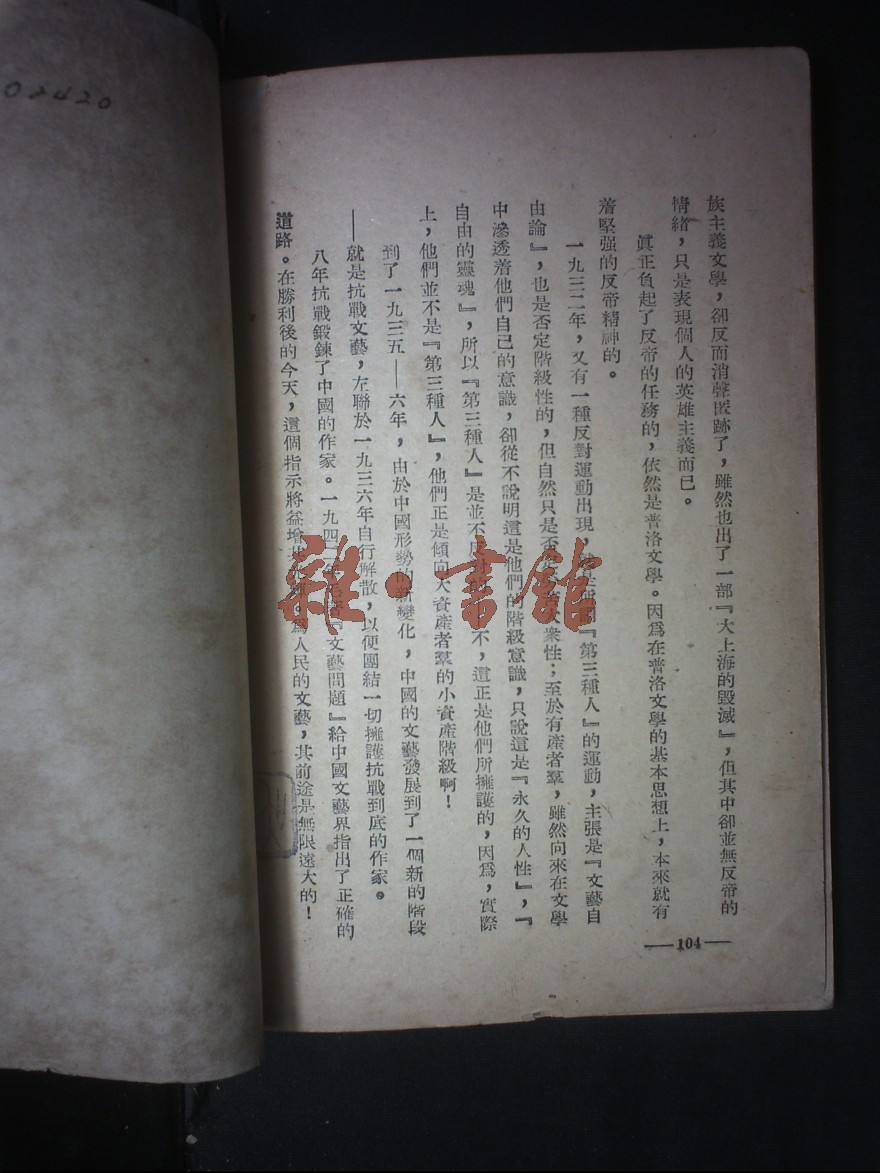 02420
族主義文學，卻反而消聲匿跡了，雖然也出了一部『大上海的毀滅』，但其中卻並無反帝的
情緒，只是表現個人的英雄主義而已。
眞正負起了反帝的任務的，依然是普洛文學。因爲在普洛文學的基本思想上，本來就有
着堅强的反帝精神的。
一九三二年，又有一種反對運動出現，『第三種人』的運動，主張是『文藝自
由論』，也是否定階級性的，但自然只是否衆性；至於有產者羣，雖然向來在文學
中滲透着他們自己的意識，卻從不說明這是他們的階級意識，只說這是『永久的人性』，『
自由的靈魂』，所以『第三種人』是並不反不，這正是他們所擁護的，因爲，實際
上，他們並不是『第三種人』，他們正是傾向大資產者羣的小資產階級啊！
到了一九三五——六年，由於中國形勢的新變化，中國的文藝發展到了一個新的階段
——就是抗戰文藝，左聯於一九三六年自行解散，以便團結一切擁護抗戰到底的作家。
八年抗戰鍛鍊了中國的作家。一九四二年『文藝問題』給中國文藝界指出了正確的
道路。在勝利後的今天，這個指示將益增其爲人民的文藝，其前途是無限遠大的！
—104—
雜·書館